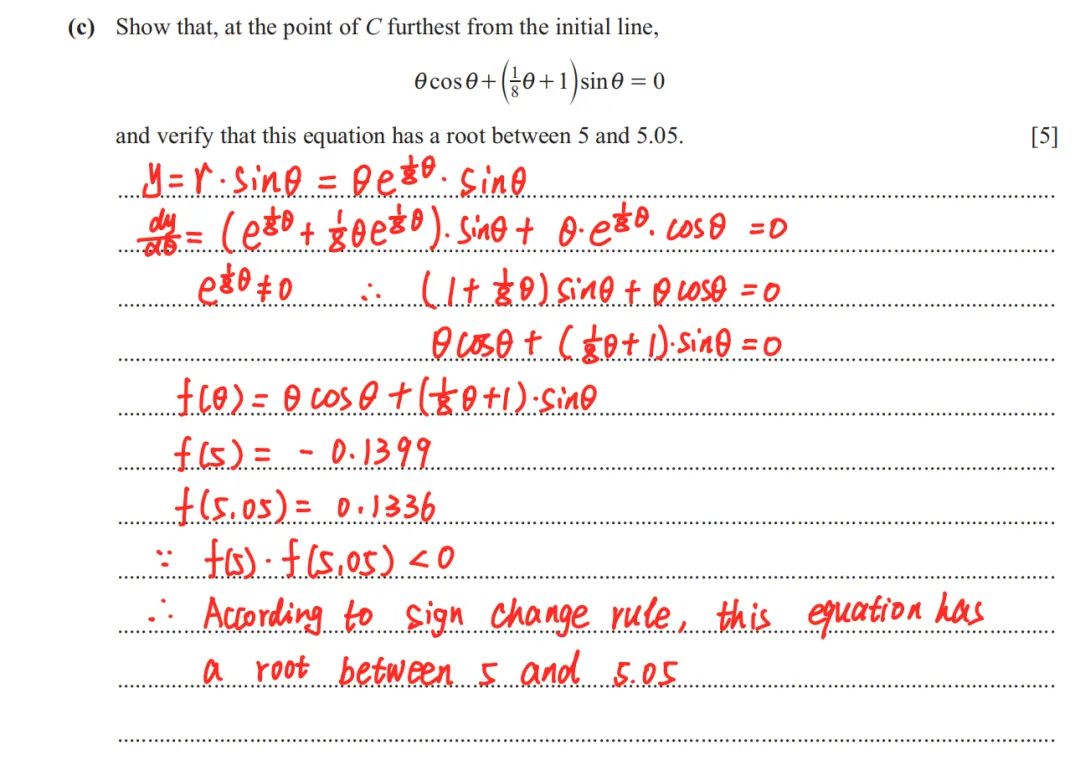 (c) Show that, at the point of C furthest from the initial line,
θcosθ+(1/8θ+1)sinθ = 0
and verify that this equation has a root between 5 and 5.05. [5]
y = r·sinθ = θe^(1/8θ)·sinθ
dy/dθ = (e^(1/8θ) + 1/8θe^(1/8θ))·sinθ + θ·e^(1/8θ)·cosθ = 0
e^(1/8θ) ≠ 0 ∴ (1+1/8θ)sinθ + θcosθ = 0
θcosθ + (1/8θ+1)·sinθ = 0
f(θ) = θcosθ + (1/8θ+1)·sinθ
f(5) = - 0.1399
f(5.05) = 0.1336
∵ f(5)·f(5.05) < 0
∴ According to sign change rule, this equation has
a root between 5 and 5.05